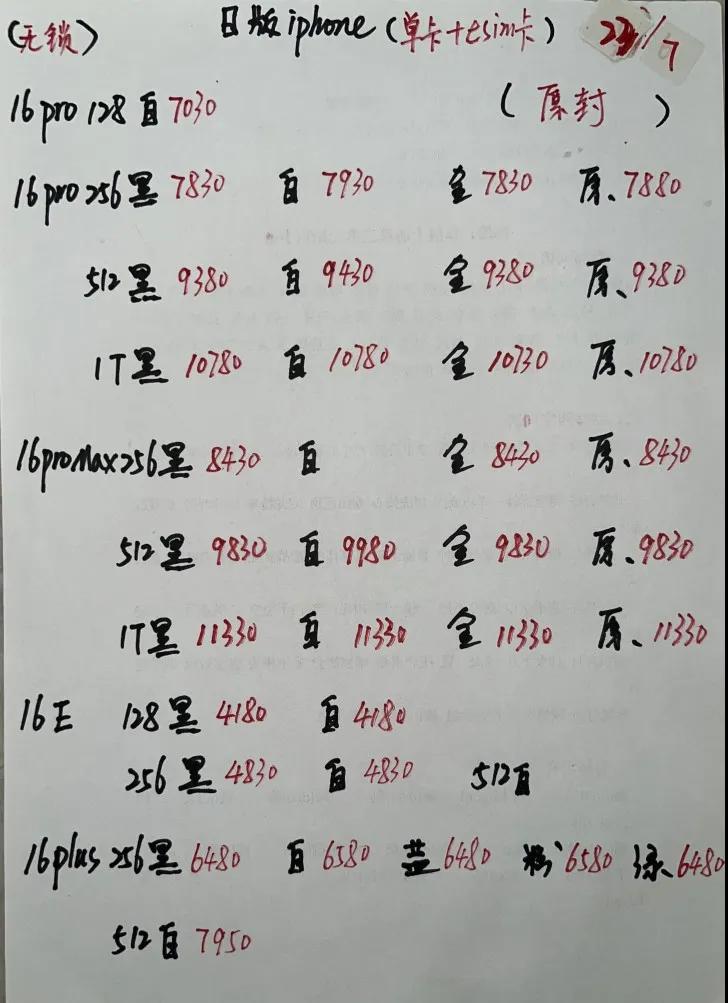 (无锁) 日版iphone(单卡+esim卡) 23/7
16pro 128 白 7030 (原封)
16pro 256 黑 7830 白 7930 金 7830 原、7880
512 黑 9380 白 9430 金 9380 原、9380
1T 黑 10780 白 10780 金 10730 原、10780
16proMax 256 黑 8430 白 金 8430 原、8430
512 黑 9830 白 9980 金 9830 原、9830
1T 黑 11330 白 11330 金 11330 原、11330
16E 128 黑 4180 白 4180
256 黑 4830 白 4830 512 白
16plus 256 黑 6480 白 6580 蓝 6480 粉 6580 绿、6480
512 白 7950